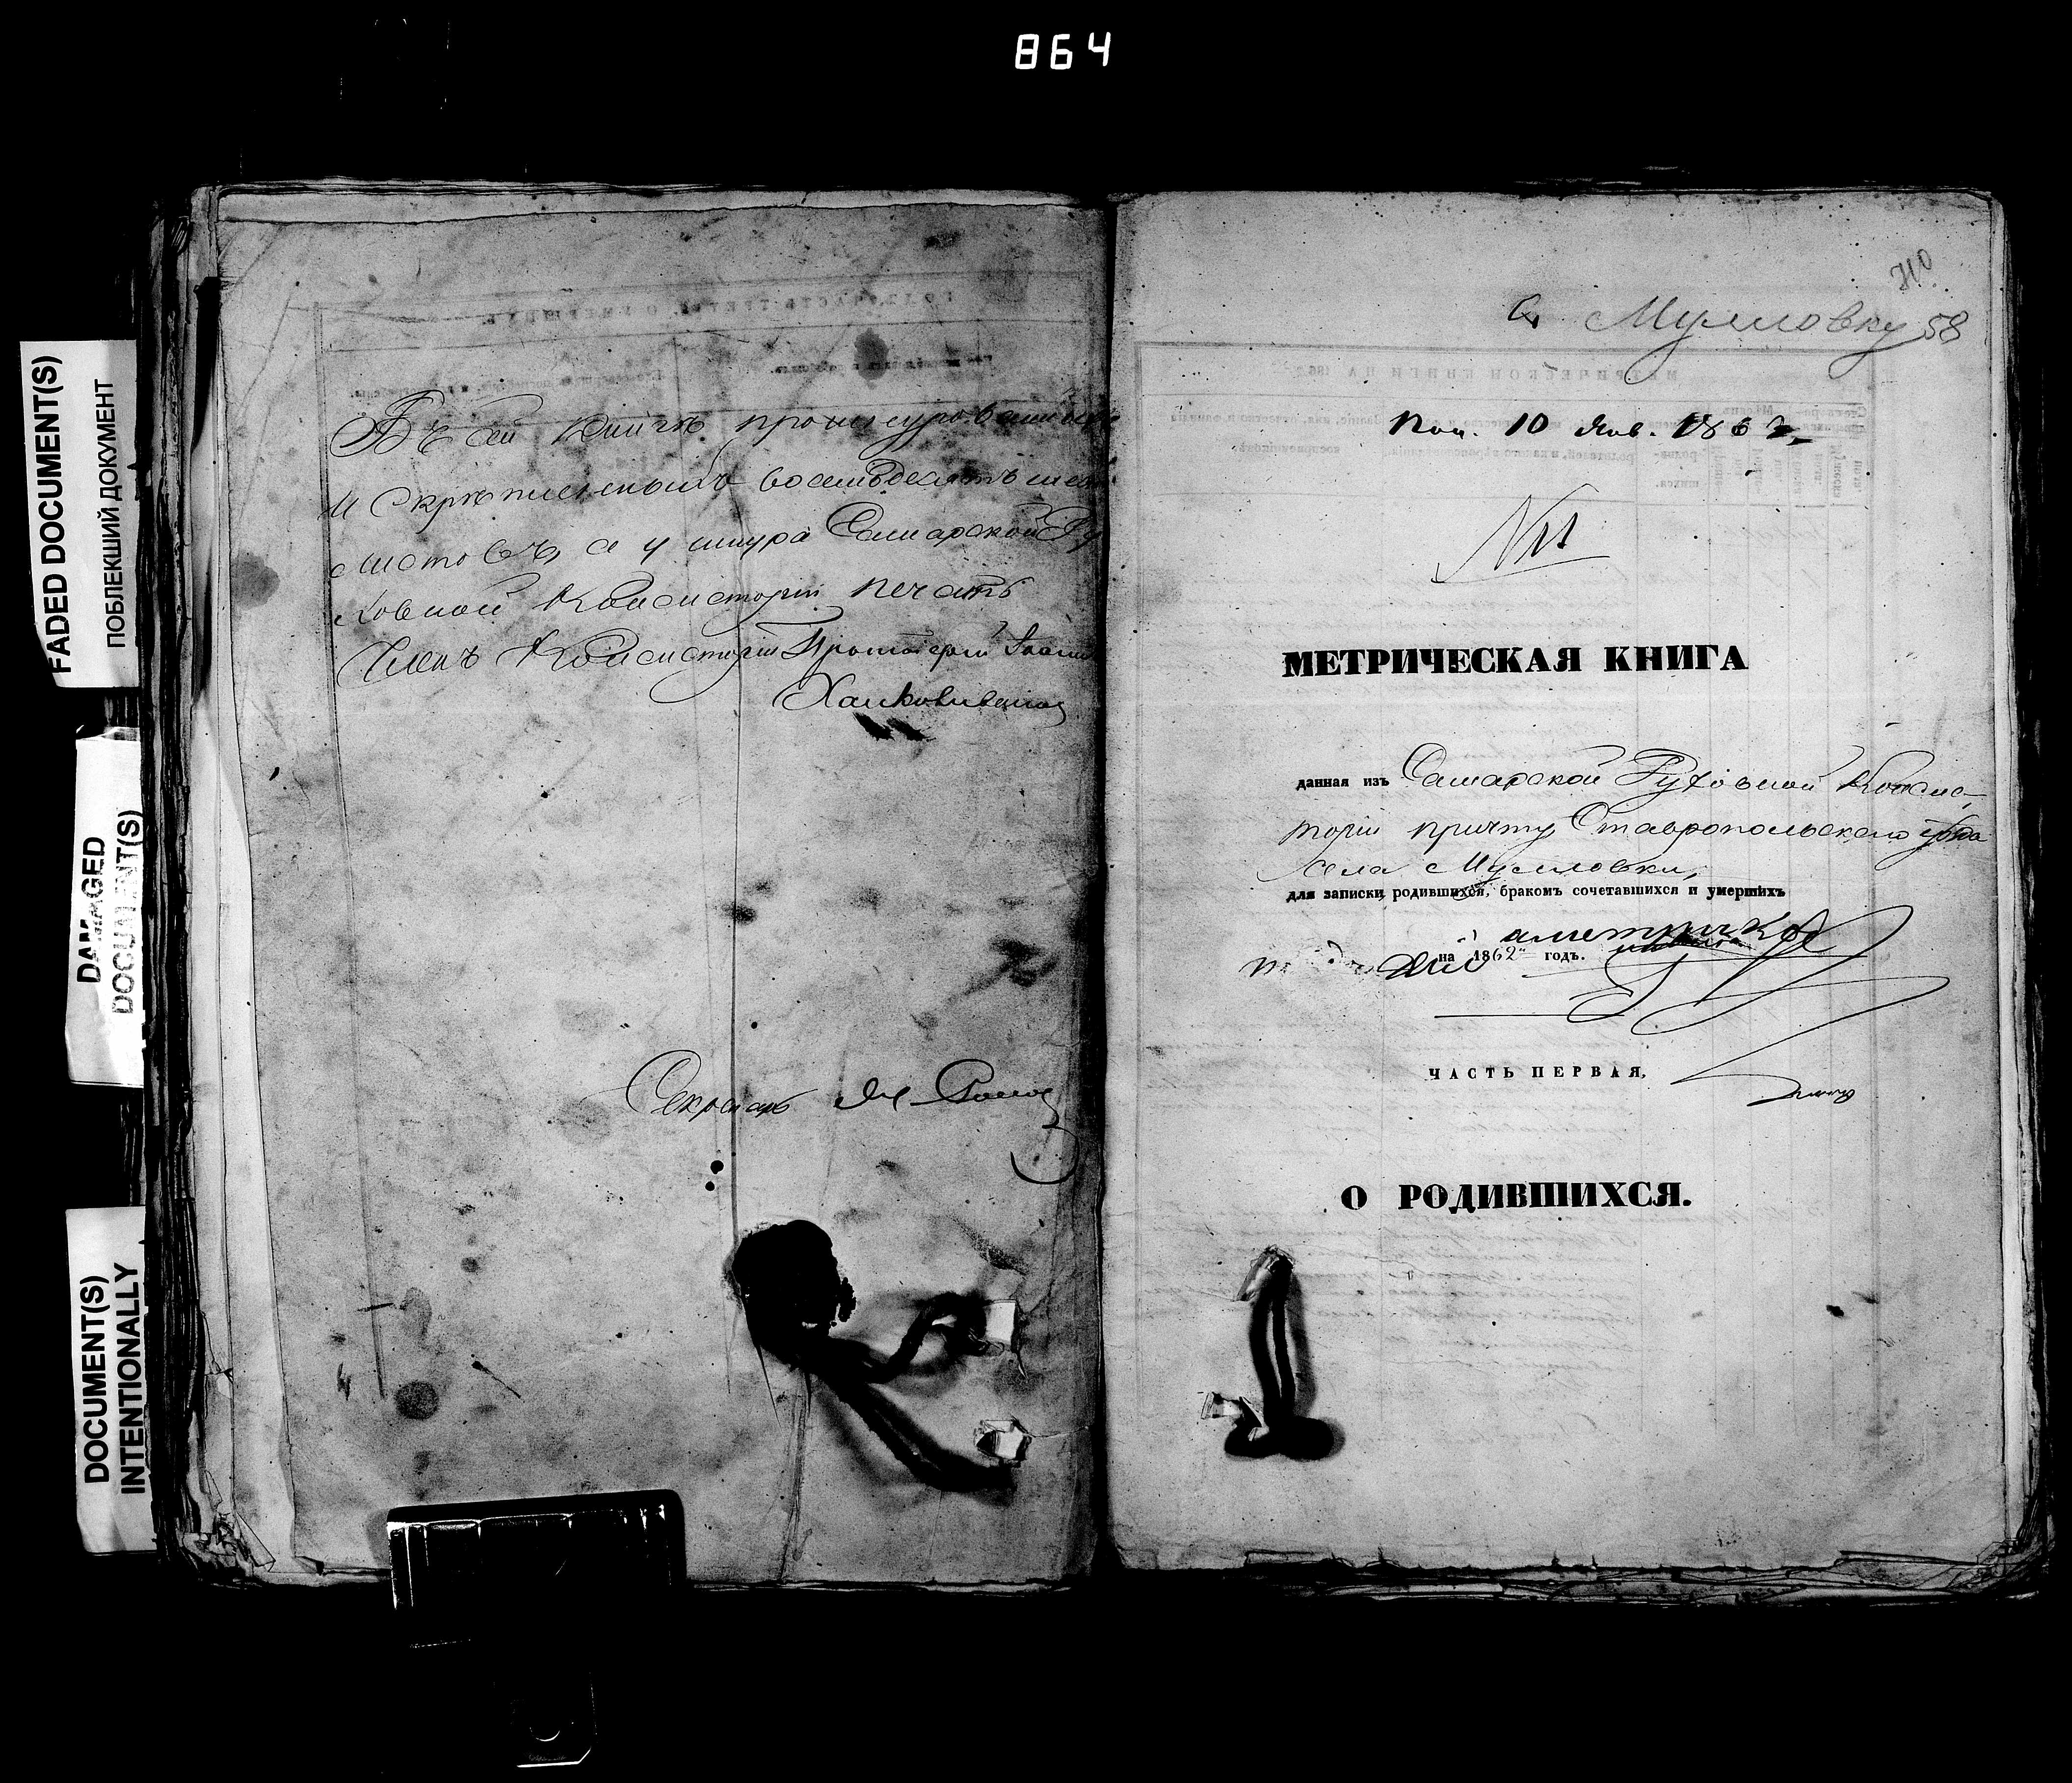 864
FADED DOCUMENT(S)
ПОБЛЕКШИЙ ДОКУМЕНТ
DAMAGED
DOCUMENT(S)
DOCUMENT(S)
INTENTIONALLY
Въ сей книгѣ прошнурованныхъ
и скрѣпленныхъ восемьдесятъ
листовъ, а у шнура Самарской Ду
ховной Консисторіи печать
Членъ Консисторіи Протоіерей Іоаннъ
Секретарь
710
58
Въ Мулловку
Пол. 10 Янв. 1862
МЕТРИЧЕСКАЯ КНИГА
данная изъ Самарской Духовной Консис-
торіи причту Ставропольскаго уѣзда
села Мулловки,
для записки родившихся, бракомъ сочетавшихся и умершихъ
на 1862 годъ.
ЧАСТЬ ПЕРВАЯ,
О РОДИВШИХСЯ.